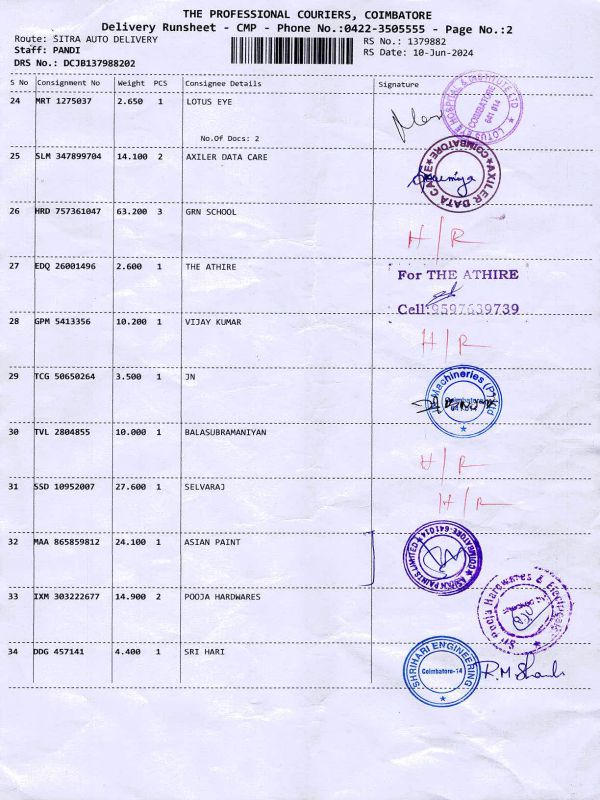 THE PROFESSIONAL COURIERS, COIMBATORE
Delivery Runsheet - CMP - Phone No.:0422-3505555 - Page No.:2
Route: SITRA AUTO DELIVERY
RS No.: 1379882
Staff: PANDI
RS Date: 10-Jun-2024
DRS No.: DCJB137988202
S No Consignment No Weight PCS Consignee Details Signature
24 MRT 1275037 2.650 1 LOTUS EYE
No.Of Docs: 2
LOTUS EYE HOSPITAL & INSTITUTE LTD
COIMBATORE
641 014
25 SLM 347899704 14.100 2 AXILER DATA CARE
AXILER DATA CARE
COIMBATORE
26 HRD 757361047 63.200 3 GRN SCHOOL
H/R
27 EDQ 26001496 2.600 1 THE ATHIRE
For THE ATHIRE
Cell:9597639739
28 GPM 5413356 10.200 1 VIJAY KUMAR
H/R
29 TCG 50650264 3.500 1 JN
Machineries (P) Ltd
Coimbatore
30 TVL 2804855 10.000 1 BALASUBRAMANIYAN
H/R
31 SSD 10952007 27.600 1 SELVARAJ
H/R
32 MAA 865859812 24.100 1 ASIAN PAINT
ASIAN PAINTS LIMITED
COIMBATORE-641014
33 IXM 303222677 14.900 2 POOJA HARDWARES
Sri Pooja Hardwares & Electricals
34 DDG 457141 4.400 1 SRI HARI
SHRIHARI ENGINEERING
Coimbatore-14